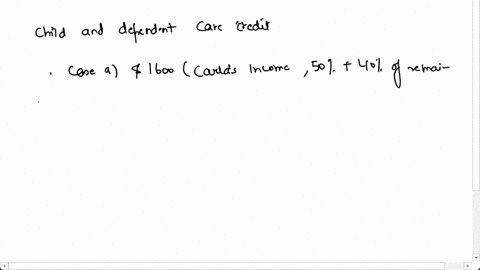 Child and dependent care credit
• Case a) $ 1600 ( Carla's Income , 50% + 40% of remai-